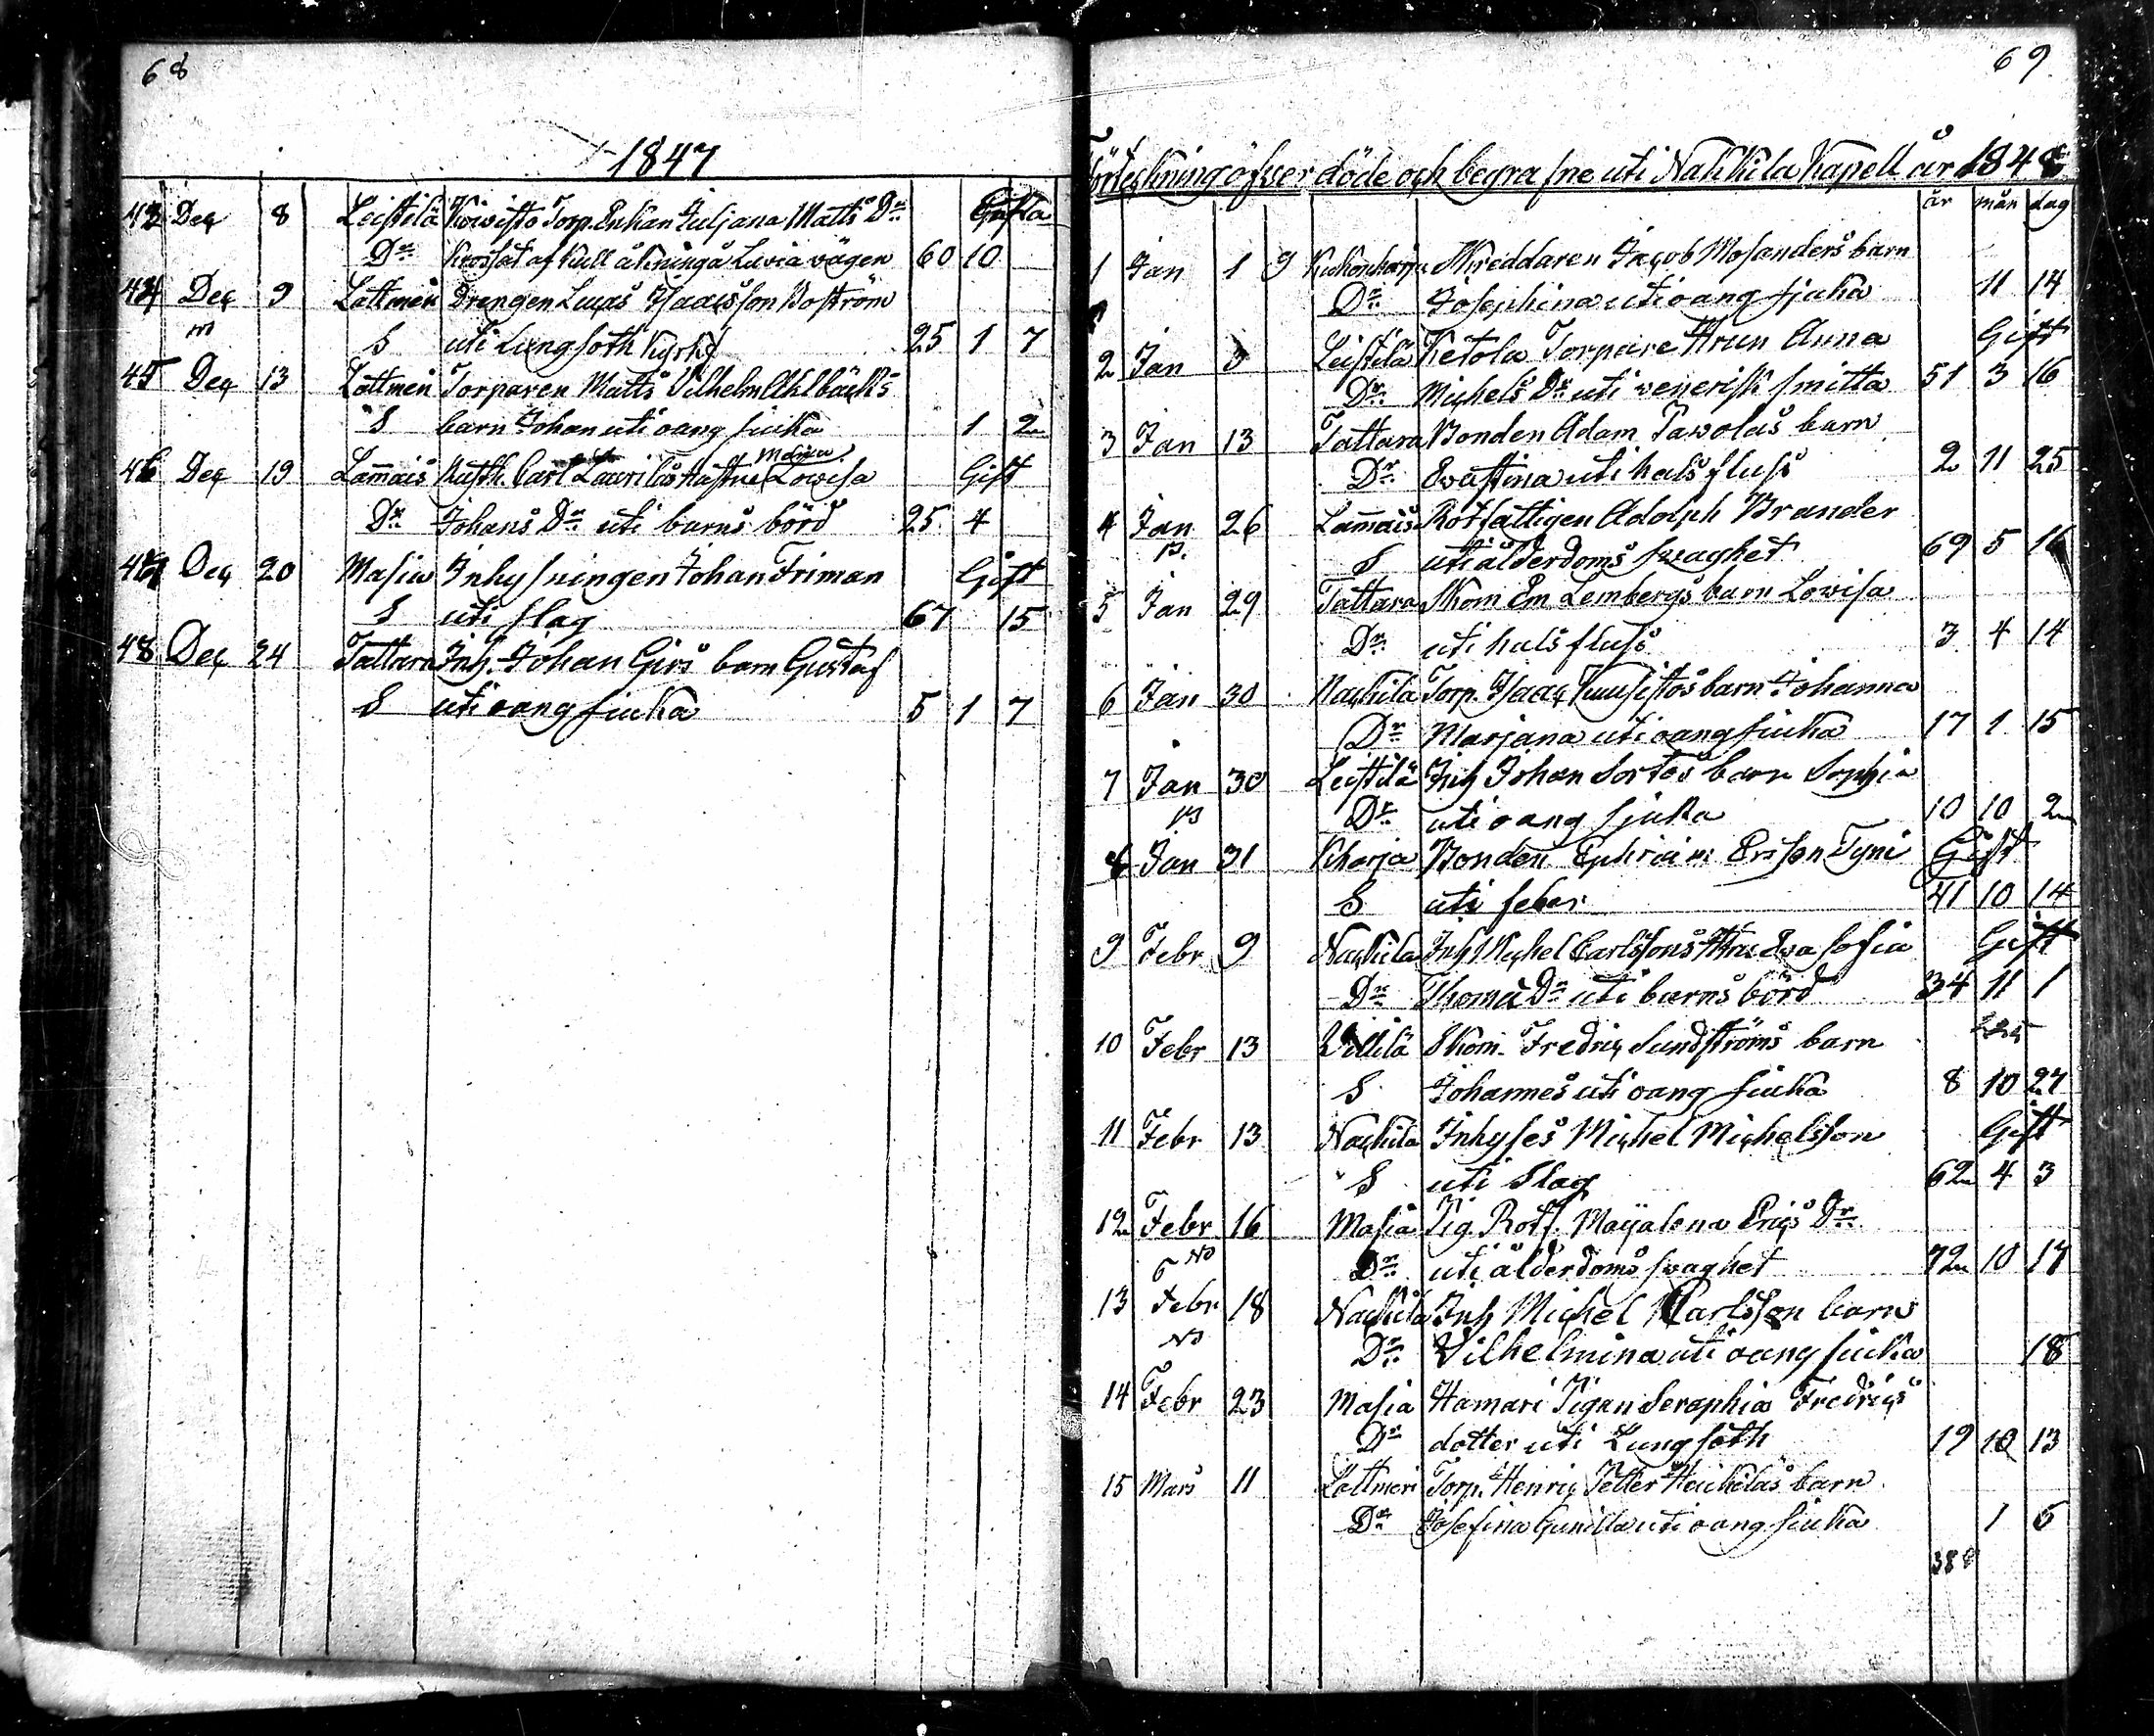 68
1847
43 Dec 8 Leistilä Koivisto Torp. Enkan Juljana Matts Dr Gifta
Dr krossat af kull åkning å Luvia vägen 60 10
44 Dec 9 Lattmeri Drengen Lucas Isaacsson Boström
S uti Lungsoth 25 1 7
45 Dec 13 Lattmeri Torparen Matts Vilhelm Ahlbäcks
S barn Johan uti oang siuka 1 2
46 Dec 19 Lammais Rusth. Carl Laurilas Hustru Maria Lowisa Gift
Dr Johans Dr uti barns börd 25 4
47 Dec 20 Masia Inhysningen Johan Friman Gift
S uti slag 67 15
48 Dec 24 Tattara Inh. Johan Girs barn Gustaf
S uti oang siuka 5 1 7
69
Förteckning öfver döde och begrafne uti Nakkila Kapell år 1848
år mån dag
1 Jan 1 9 Kukonharju Skreddaren Jacob Mosanders barn
Dr Josephina uti oang sjuka 11 14
2 Jan 3 Leistilä Ketola Torpare Hrun Anna Gift
Dr Michels Dr uti venerisk smitta 51 3 16
3 Jan 13 Tattara Bonden Adam Pawolas barn
Dr Evastina uti hals fluss 2 11 25
4 Jan 26 Lammais Rotfattigen Adolph Brander
S uti ålderdoms swaghet 69 5 16
5 Jan 29 Tattara Skom Em Lembergs barn Lowisa
Dr uti hals fluss 3 4 14
6 Jan 30 Nackila Torp. Isaac Kuusistos barn Johanna
Dr Marjana uti oang siuka 17 1 15
7 Jan 30 Leistilä Inh Johan Sortos barn Sophia
Dr uti oang sjuka 10 10 2
8 Jan 31 Kharja Bonden Ephraim Ersson Tyni Gift
S uti feber 41 10 14
9 Febr 9 Nackila Inh Michel Carlssons Hru Eva Sofia Gift
Dr Thoma Dr uti barns börd 34 11 1
10 Febr 13 Villilä Skom. Fredric Sundströms barn
S Johannes uti oang siuka 8 10 27
11 Febr 13 Nackila Inhyses Michel Michelsson Gift
S uti Slag 62 4 3
12 Febr 16 Masia Pig. Rotf. Majalena Erics Dr
Dr uti ålderdoms swaghet 72 10 17
13 Febr 18 Nackila Inh Michel Karlsson barn
Dr Vilhelmina uti oang siuka 18
14 Febr 23 Masia Hamari Pigan Seraphia Fredrics
Dr dotter uti Lungsoth 19 10 13
15 Mars 11 Lattmeri Torp. Henric Petter Heickiläs barn
Dr Josefina Gunilla uti oang siuka 1 6
388